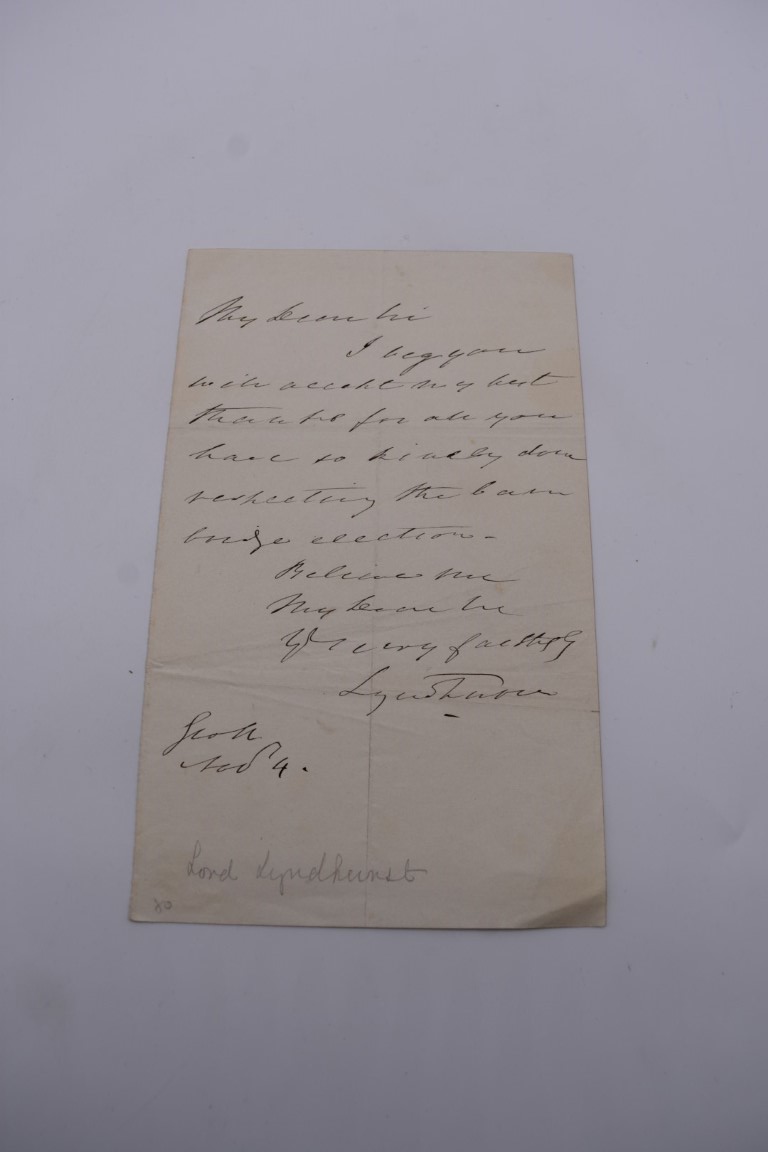 My Dear Sir
I beg you
will accept my best
thanks for all you
have so kindly done
respecting the Cam
bridge election -
Believe me
My Dear Sir
Yrs very faithfly
Lyndhurst
Nov 4.
Lord Lyndhurst